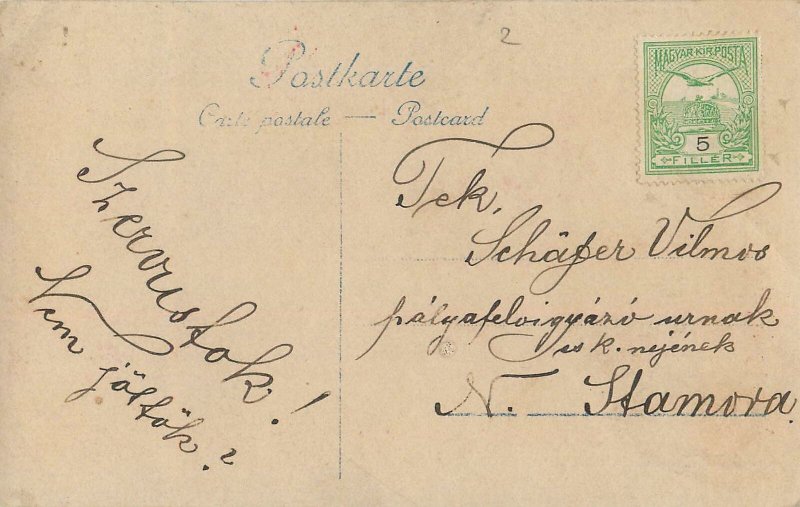 2
Postkarte
Carte postale — Postcard
MAGYAR KIR. POSTA
5
FILLÉR
Szervustok!
Nem
jöttök?
Tek.
Schäfer Vilmos
pályafelvigyázó úrnak
és k. nejének
N. Stamora